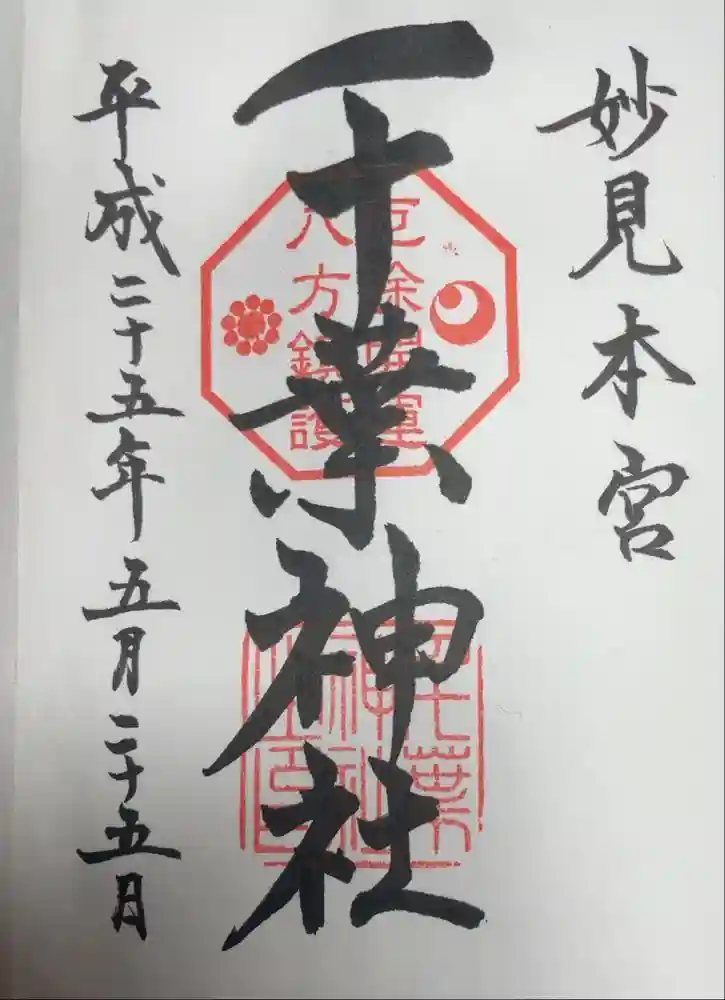 妙見本宮
千葉神社
厄除開運
八方鎮護
千葉
神社
之印
平成二十五年五月二十五月